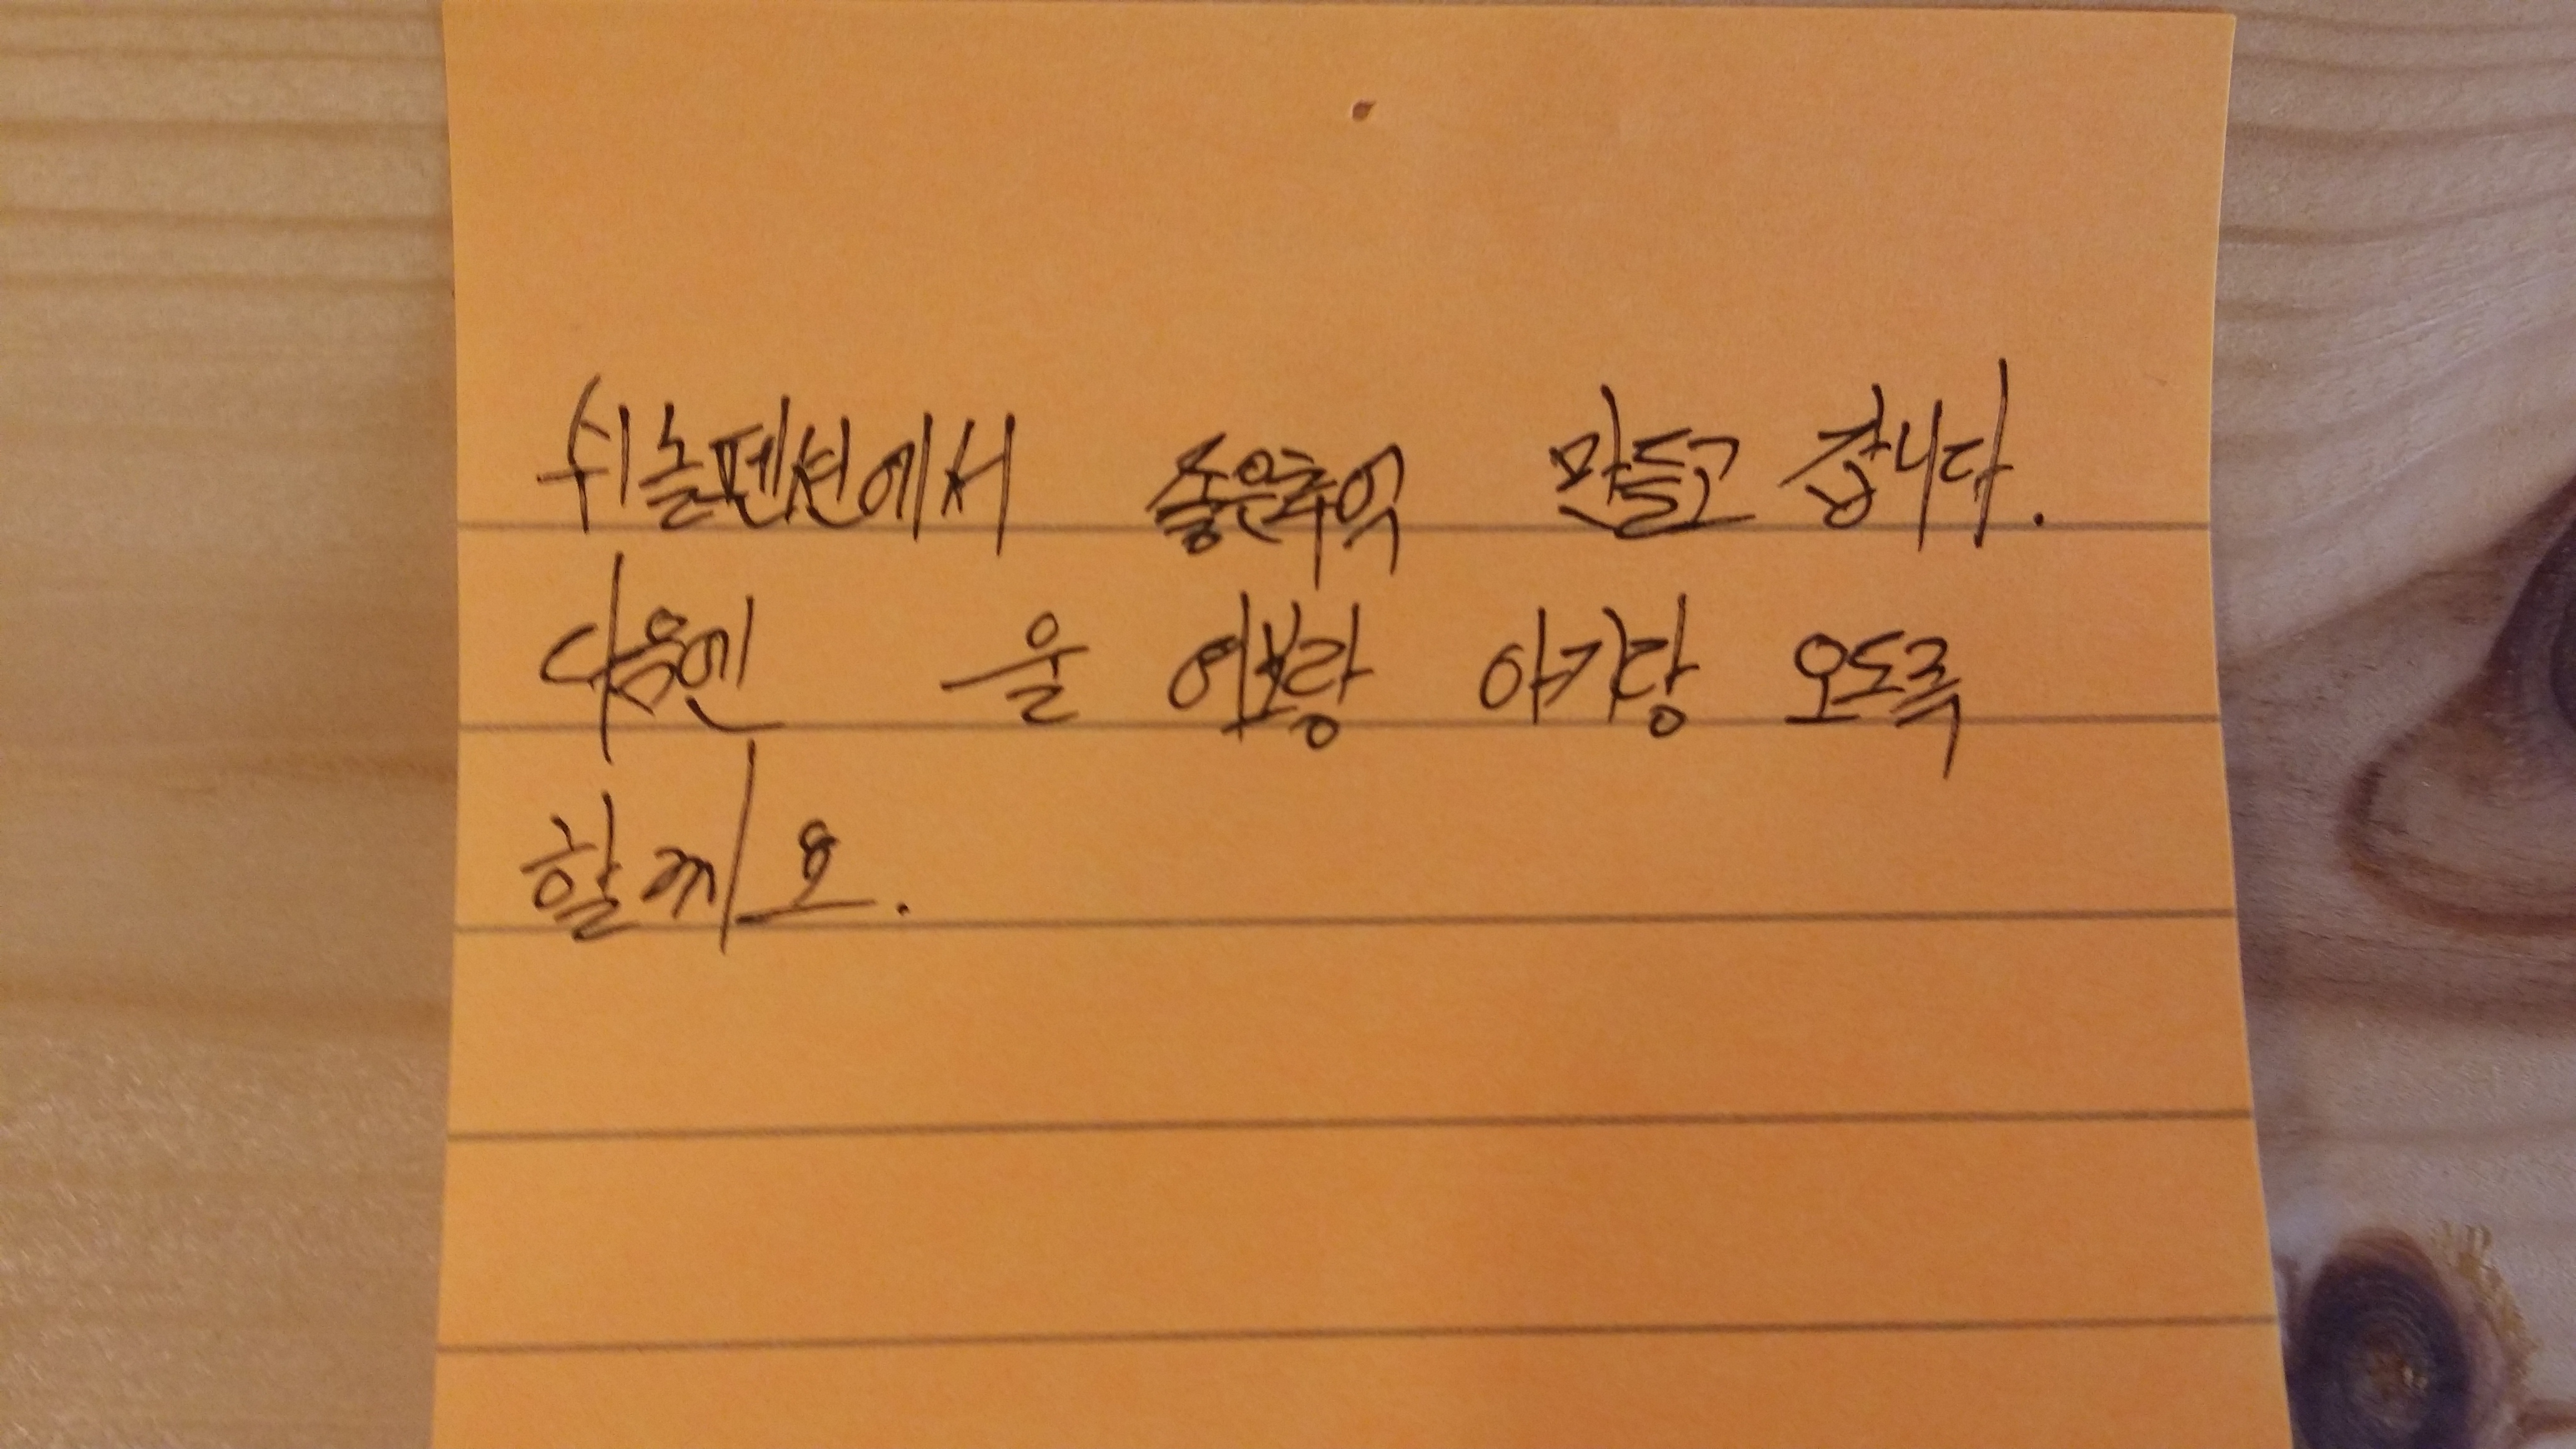 쉬놀펜션에서 좋은추억 만들고 갑니다.
다음엔 울 여보랑 아가랑 오도록
할께요.